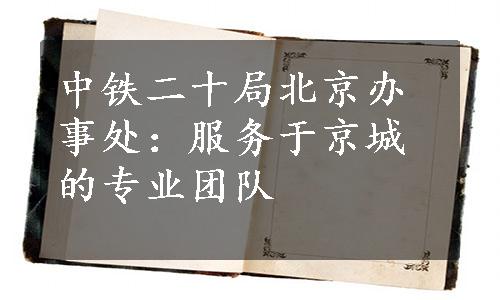 中铁二十局北京办
事处：服务于京城
的专业团队